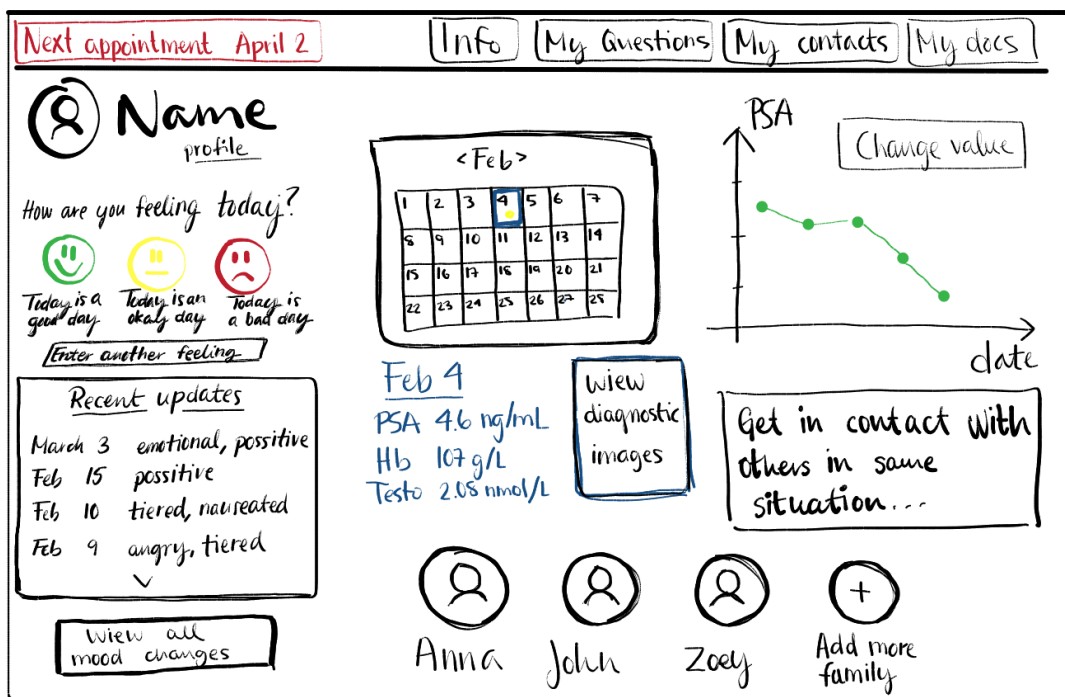 Next appointment April 2
Info
My Questions
My contacts
My docs
Name
profile
How are you feeling today?
Today is a
good day
Today is an
okay day
Today is
a bad day
Enter another feeling
Recent updates
March 3 emotional, possitive
Feb 15 possitive
Feb 10 tiered, nauseated
Feb 9 angry, tiered
Wiew all
mood changes
<Feb>
1 2 3 4 5 6 7
8 9 10 11 12 13 14
15 16 17 18 19 20 21
22 23 24 25 26 27 28
Feb 4
PSA 4.6 ng/mL
Hb 107 g/L
Testo 2.08 nmol/L
wiew
diagnostic
images
PSA
Change value
date
Get in contact with
others in same
situation...
Anna
John
Zoey
+
Add more
family